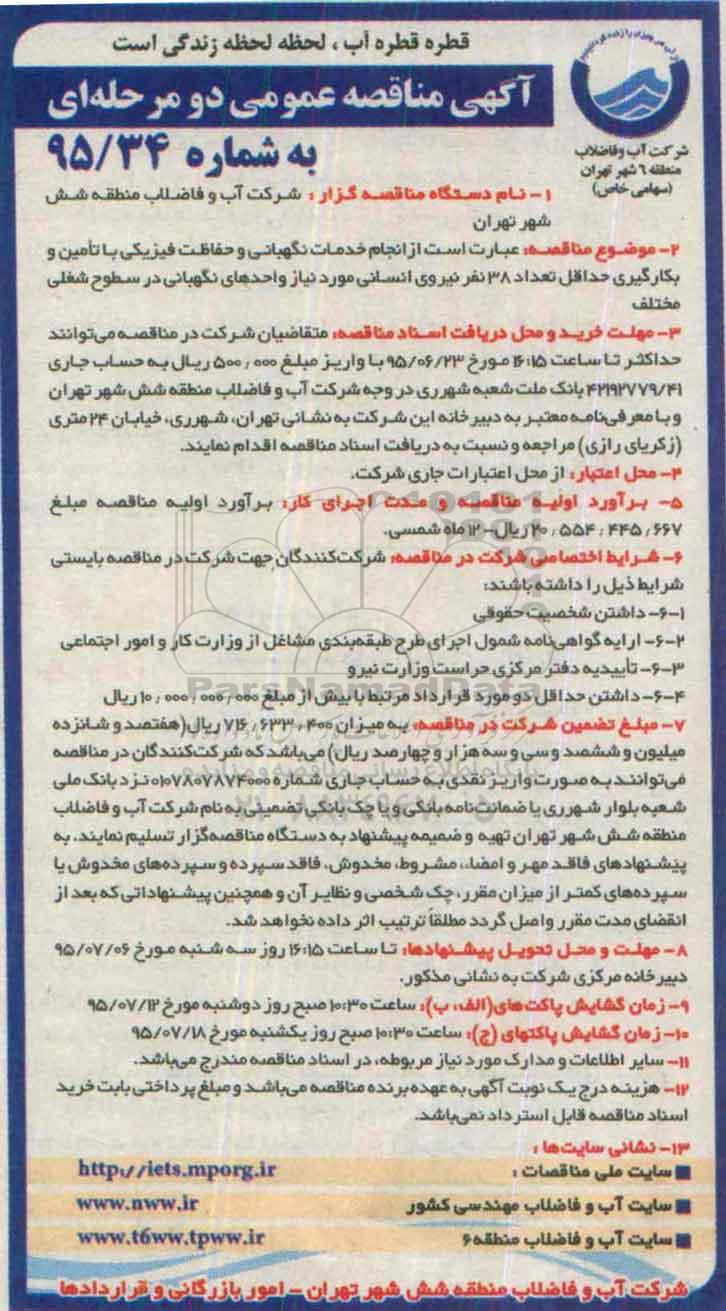 قطره قطره آب ، لحظه لحظه زندگی است
آگهی مناقصه عمومی دو مرحله‌ای
به شماره ۹۵/۳۴
شرکت آب و فاضلاب
منطقه ۶ شهر تهران
(سهامی خاص)
۱- نام دستگاه مناقصه گزار : شرکت آب و فاضلاب منطقه شش
شهر تهران
۲- موضوع مناقصه: عبارت است از انجام خدمات نگهبانی و حفاظت فیزیکی با تأمین و
بکارگیری حداقل تعداد ۳۸ نفر نیروی انسانی مورد نیاز واحدهای نگهبانی در سطوح شغلی
مختلف
۳- مهلت خرید و محل دریافت اسناد مناقصه: متقاضیان شرکت در مناقصه می‌توانند
حداکثر تا ساعت ۱۶:۱۵ مورخ ۹۵/۰۶/۲۳ با واریز مبلغ ۵۰۰٫۰۰۰ ریال به حساب جاری
۴۲۱۹۲۷۷۹/۴۱ بانک ملت شعبه شهرری در وجه شرکت آب و فاضلاب منطقه شش شهر تهران
و با معرفی‌نامه معتبر به دبیرخانه این شرکت به نشانی تهران، شهرری، خیابان ۲۴ متری
(زکریای رازی) مراجعه و نسبت به دریافت اسناد مناقصه اقدام نمایند.
۴- محل اعتبار: از محل اعتبارات جاری شرکت.
۵- برآورد اولیه مناقصه و مدت اجرای کار: برآورد اولیه مناقصه مبلغ
۲۰٫۵۵۴٫۴۴۵٫۶۶۷ ریال- ۱۲ ماه شمسی.
۶- شرایط اختصاصی شرکت در مناقصه: شرکت‌کنندگان جهت شرکت در مناقصه بایستی
شرایط ذیل را داشته باشند:
۶-۱- داشتن شخصیت حقوقی
۶-۲- ارایه گواهی‌نامه شمول اجرای طرح طبقه‌بندی مشاغل از وزارت کار و امور اجتماعی
۶-۳- تأییدیه دفتر مرکزی حراست وزارت نیرو
۶-۴- داشتن حداقل دو مورد قرارداد مرتبط با بیش از مبلغ ۱۰٫۰۰۰٫۰۰۰٫۰۰۰ ریال
۷- مبلغ تضمین شرکت در مناقصه: به میزان ۷۱۶٫۶۳۳٫۴۰۰ ریال (هفتصد و شانزده
میلیون و ششصد و سی و سه هزار و چهارصد ریال) می‌باشد که شرکت‌کنندگان در مناقصه
می‌توانند به صورت واریز نقدی به حساب جاری شماره ۰۱۰۷۸۰۷۸۷۴۰۰۰ نزد بانک ملی
شعبه بلوار شهرری یا ضمانت‌نامه بانکی و یا چک بانکی تضمینی به نام شرکت آب و فاضلاب
منطقه شش شهر تهران تهیه و ضمیمه پیشنهاد به دستگاه مناقصه‌گزار تسلیم نمایند. به
پیشنهادهای فاقد مهر و امضا، مشروط، مخدوش، فاقد سپرده و سپرده‌های مخدوش یا
سپرده‌های کمتر از میزان مقرر، چک شخصی و نظایر آن و همچنین پیشنهاداتی که بعد از
انقضای مدت مقرر واصل گردد مطلقاً ترتیب اثر داده نخواهد شد.
۸- مهلت و محل تحویل پیشنهادها: تا ساعت ۱۶:۱۵ روز سه شنبه مورخ ۹۵/۰۷/۰۶
دبیرخانه مرکزی شرکت به نشانی مذکور.
۹- زمان گشایش پاکت‌های(الف، ب): ساعت ۱۰:۳۰ صبح روز دوشنبه مورخ ۹۵/۰۷/۱۲
۱۰- زمان گشایش پاکتهای (ج): ساعت ۱۰:۳۰ صبح روز یکشنبه مورخ ۹۵/۰۷/۱۸
۱۱- سایر اطلاعات و مدارک مورد نیاز مربوطه، در اسناد مناقصه مندرج می‌باشد.
۱۲- هزینه درج یک نوبت آگهی به عهده برنده مناقصه می‌باشد و مبلغ پرداختی بابت خرید
اسناد مناقصه قابل استرداد نمی‌باشد.
۱۳- نشانی سایت‌ها :
سایت ملی مناقصات : http://iets.mporg.ir
سایت آب و فاضلاب مهندسی کشور www.nww.ir
سایت آب و فاضلاب منطقه۶ www.t6ww.tpww.ir
شرکت آب و فاضلاب منطقه شش شهر تهران - امور بازرگانی و قراردادها
ParsNamadData